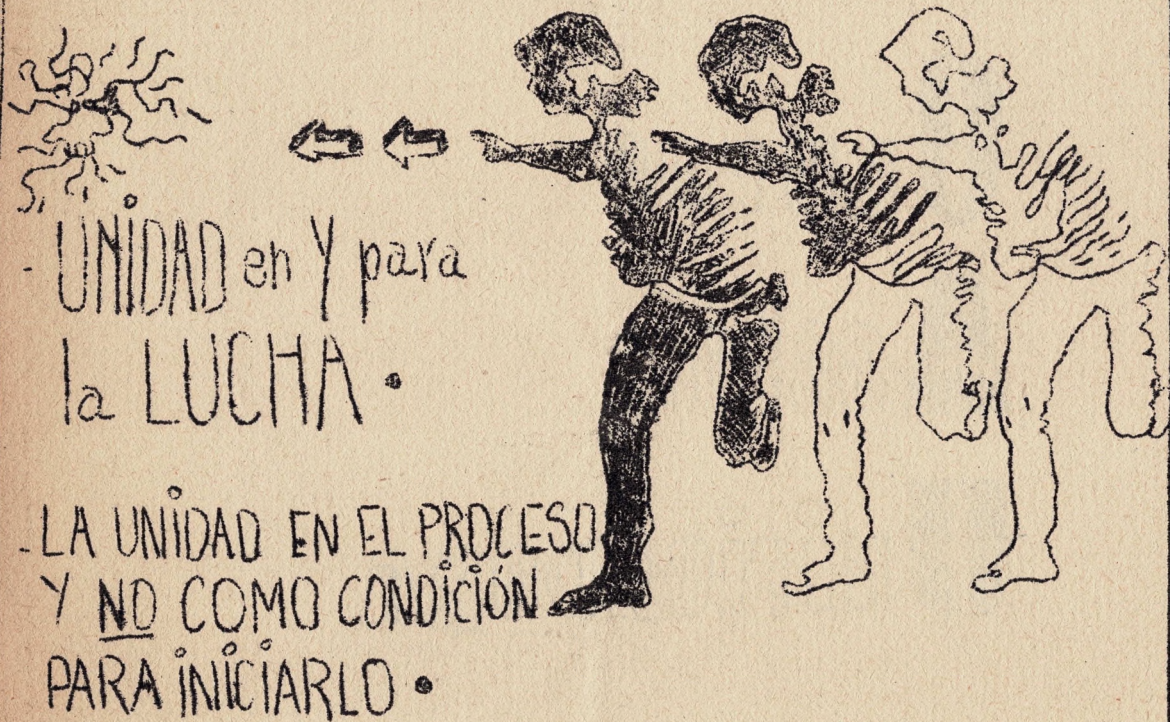 - UNiDAD en Y para
la LUCHA.
- LA UNiDAD EN EL PROCESO
Y NO COMO CONDiCiÓN
PARA iNiCiARLO.